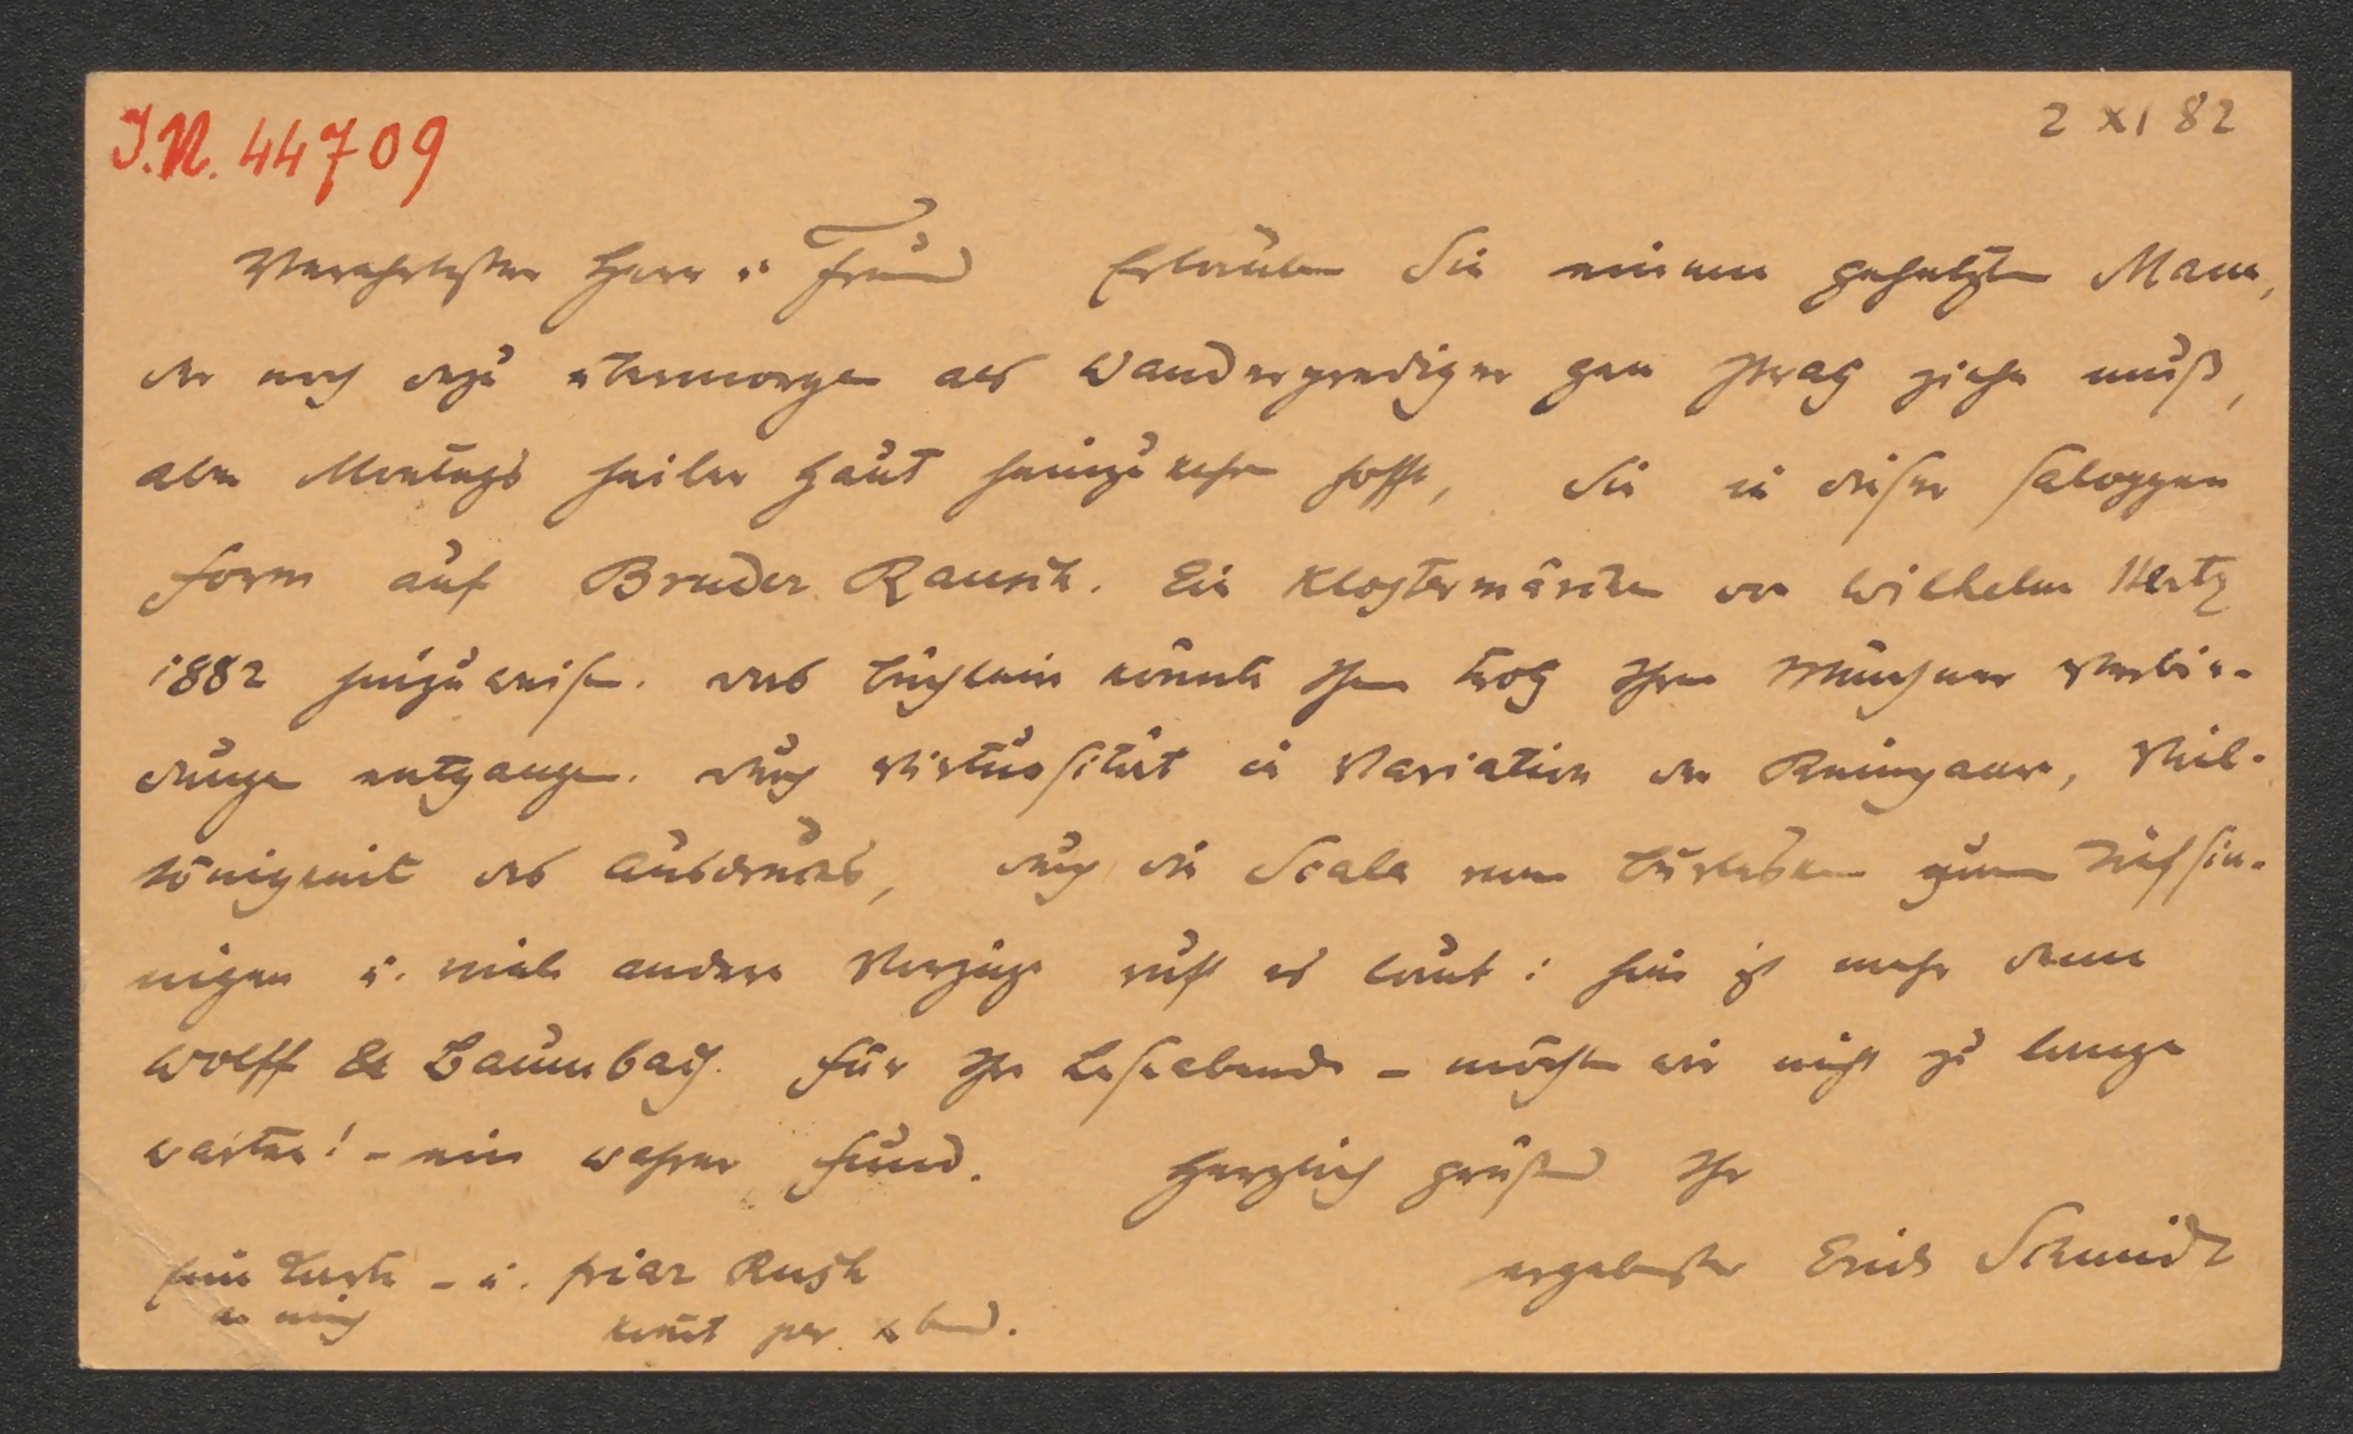 J.N. 44709
2 XI 82
Verehrtester Herr u. Freund Erlauben Sie einem gehetzten Mann,
der noch dazu übermorgen als Wanderprediger gen Prag ziehn muß,
aber Montags heiler Haut heimzukehren hofft, Sie in dieser saloppen
Form auf Bruder Rausch. Ein Klostermärchen von Wilhelm Hertz
1882 hinzuweisen. Das Büchlein könnte Ihnen trotz Ihren Münchner Verbin-
dungen entgangen. Durch Virtuosität in Variation der Reimpaare, Viel-
tönigkeit des Ausdrucks, durch die Scala vom Burlesken zum Tiefsin-
nigen u. viele andere Vorzüge ruft es laut: hier ist mehr denn
Wolff & Baumbach. Für Ihre Leseabende – möchten wir nicht zu lange
warten! – ein wahrer Fund. Herzlich grüßend Ihr
ergebenster Erich Schmidt
sein – u. friar Rush
an mich kommt per xband.